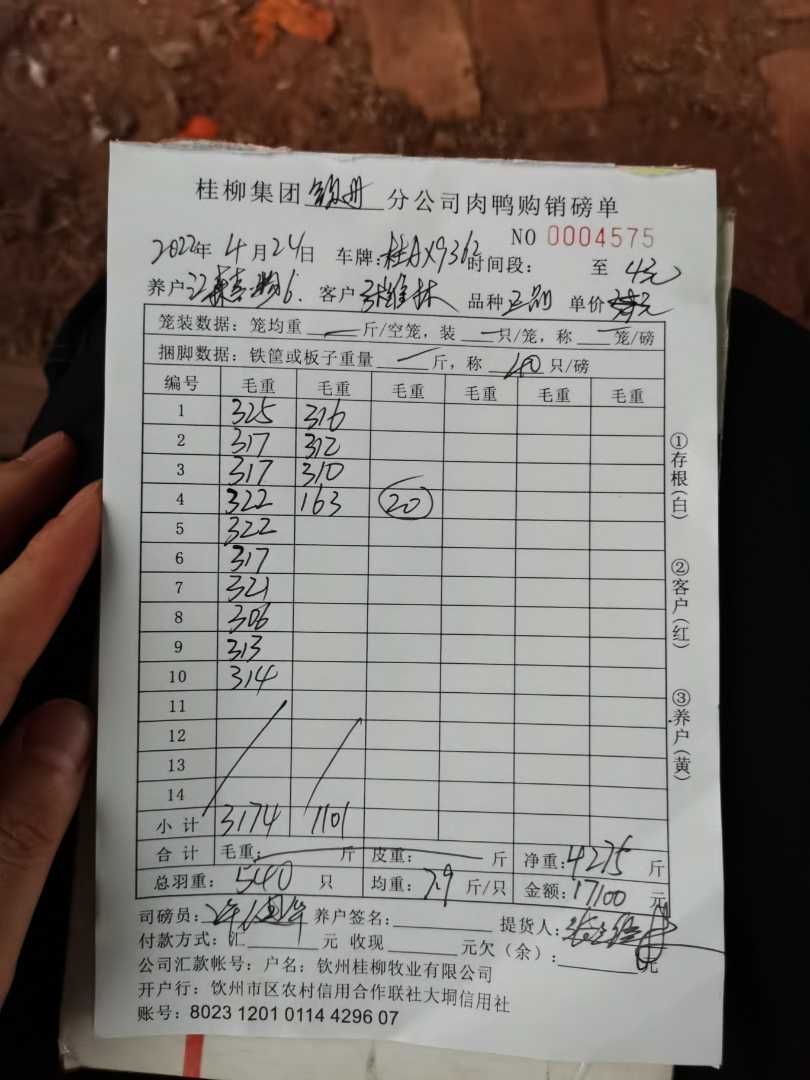 桂柳集团 钦州 分公司肉鸭购销磅单
NO 0004575
2022年 4月24日 车牌:桂AX9362 时间段: 至 4元
养户 客户 品种 正品 单价
笼装数据: 笼均重 斤/空笼, 装 只/笼, 称 笼/磅
捆脚数据: 铁筐或板子重量 斤, 称 40 只/磅
编号 毛重 毛重 毛重 毛重 毛重 毛重
1 325 316
2 317 312
3 317 310
4 322 163 20
5 322
6 317
7 321
8 306
9 313
10 314
11
12
13
14
小计 3174 1101
合计 毛重: 斤 皮重: 斤 净重: 4275 斤
总羽重: 540 只 均重: 7.9 斤/只 金额: 17100 元
司磅员: 养户签名: 提货人:
付款方式: 汇 元 收现 元欠(余): 元
公司汇款帐号: 户名: 钦州桂柳牧业有限公司
开户行: 钦州市区农村信用合作联社大垌信用社
账号: 8023 1201 0114 4296 07
①存根(白)
②客户(红)
③养户(黄)